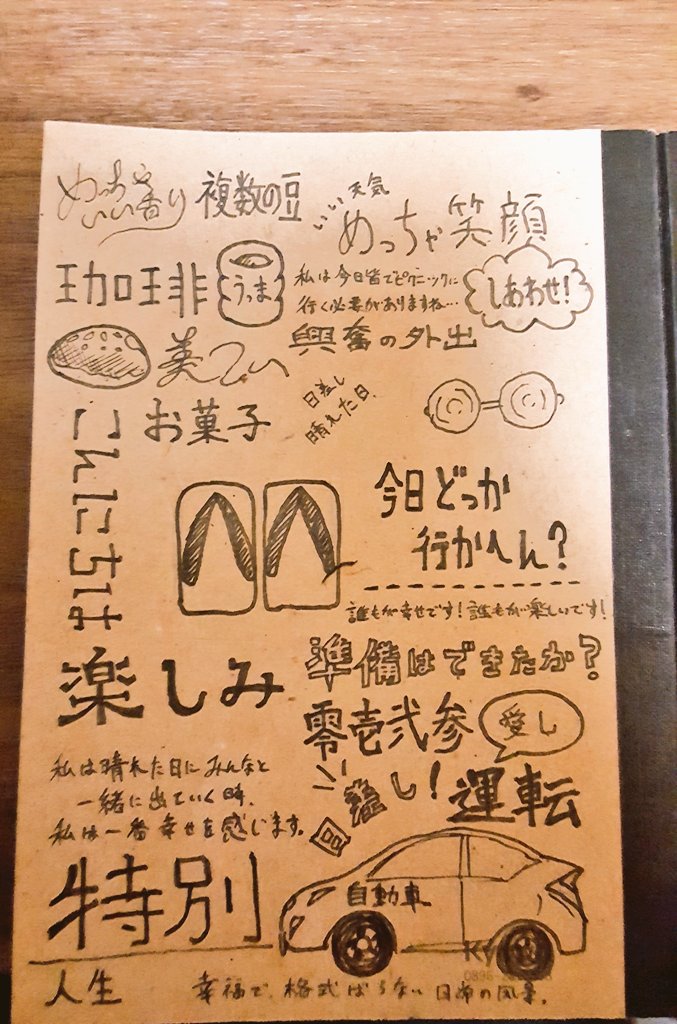 めっちゃ
いい香り
複数の豆
いい天気
めっちゃ笑顔
珈琲
うっま
私は今日皆でピクニックに
行く必要がありますね…
しあわせ!
興奮の外出
美
お菓子
日差し
晴れた日
こんにちは
今日どっか
行かへん?
誰もが幸せです!誰もが楽しいです!
楽しみ
準備はできたか?
零壱弐参
愛し
私は晴れた日にみんなと
一緒に出ていく時、
私は一番幸せを感じます。
し!
運転
特別
自動車
人生
幸福で、格式ばらない日常の風景。